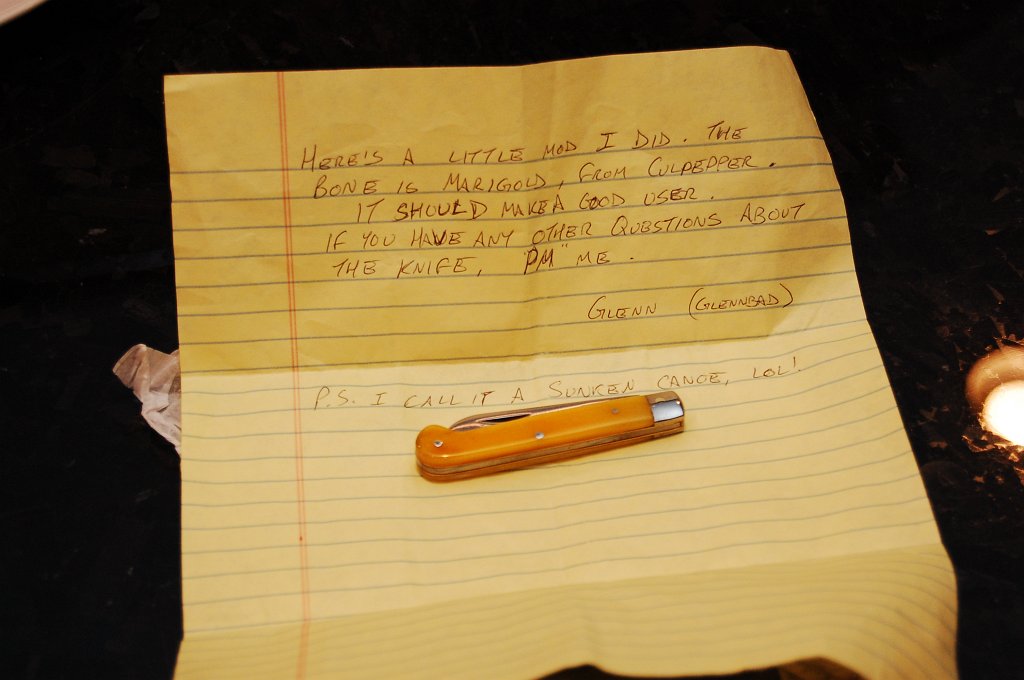 HERE'S A LITTLE MOD I DID. THE
BONE IS MARIGOLD, FROM CULPEPPER.
IT SHOULD MAKE A GOOD USER.
IF YOU HAVE ANY OTHER QUESTIONS ABOUT
THE KNIFE, "PM" ME.
GLENN (GLENNBAD)
P.S. I CALL IT A SUNKEN CANOE, LOL!